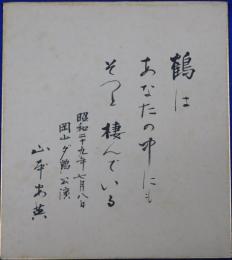 鶴は
あなたの中にも
そっと棲んでいる
昭和二十九年七月八日
岡山夕鶴公演
山本安英